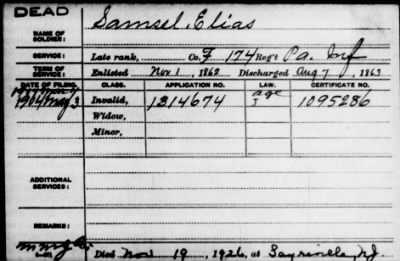 DEAD
NAME OF SOLDIER: Samsel, Elias
SERVICE: Late rank, Co. F 174 Reg't Pa. Inf
TERM OF SERVICE: Enlisted Nov 1, 1862 Discharged Aug 7, 1863
DATE OF FILING. CLASS. APPLICATION NO. LAW. CERTIFICATE NO.
1904 May 3 Invalid, 1314674 age 1095286
Widow,
Minor,
ADDITIONAL SERVICES:
REMARKS:
Died Nov 19, 1926, at Sayreville, N.J.